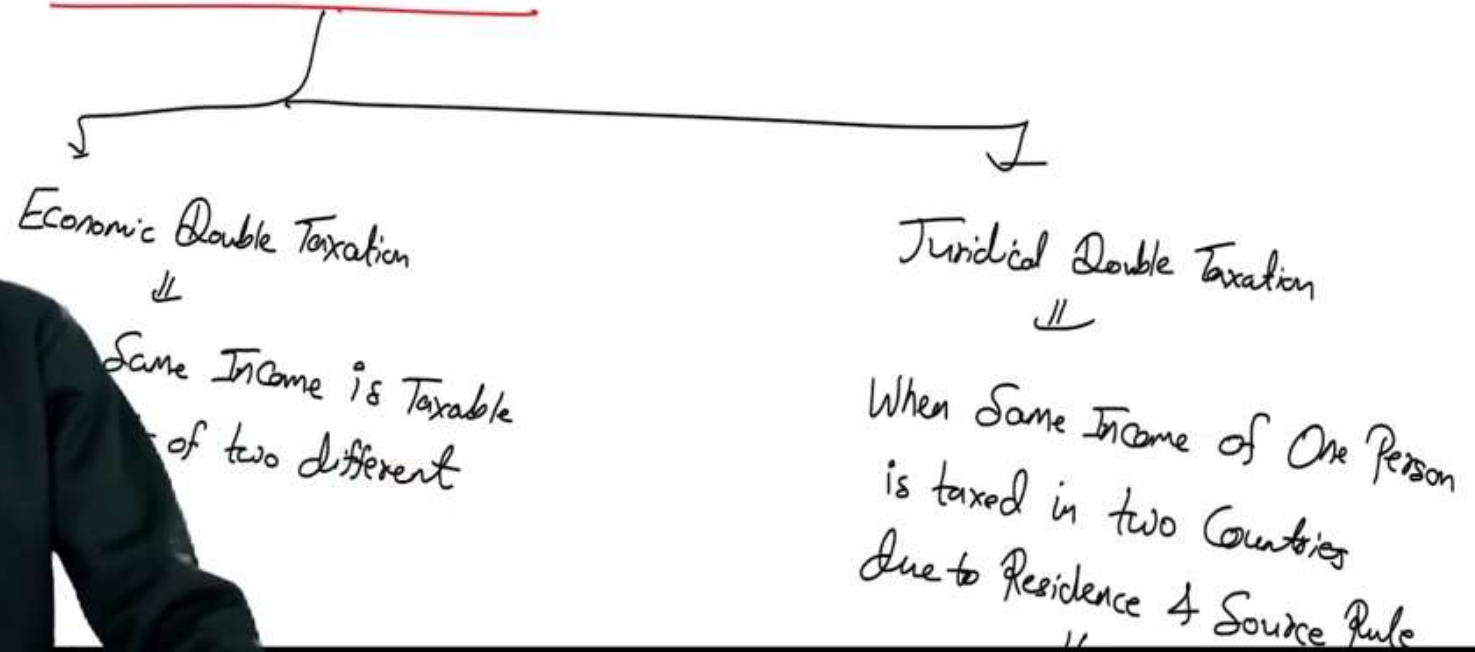 Economic Double Taxation
Same Income is Taxable
of two different
Juridical Double Taxation
When Same Income of One Person
is taxed in two Countries
due to Residence & Source Rule